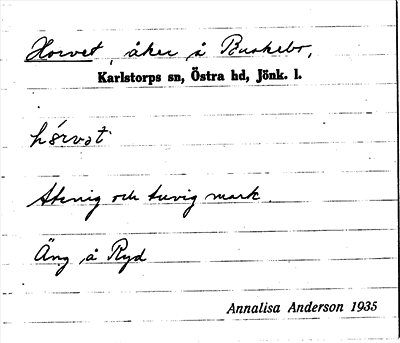 Horvet, åker å Buskebo,
Karlstorps sn, Östra hd, Jönk. l.
hórvət
Stenig och tuvig mark.
Äng å Ryd
Annalisa Anderson 1935